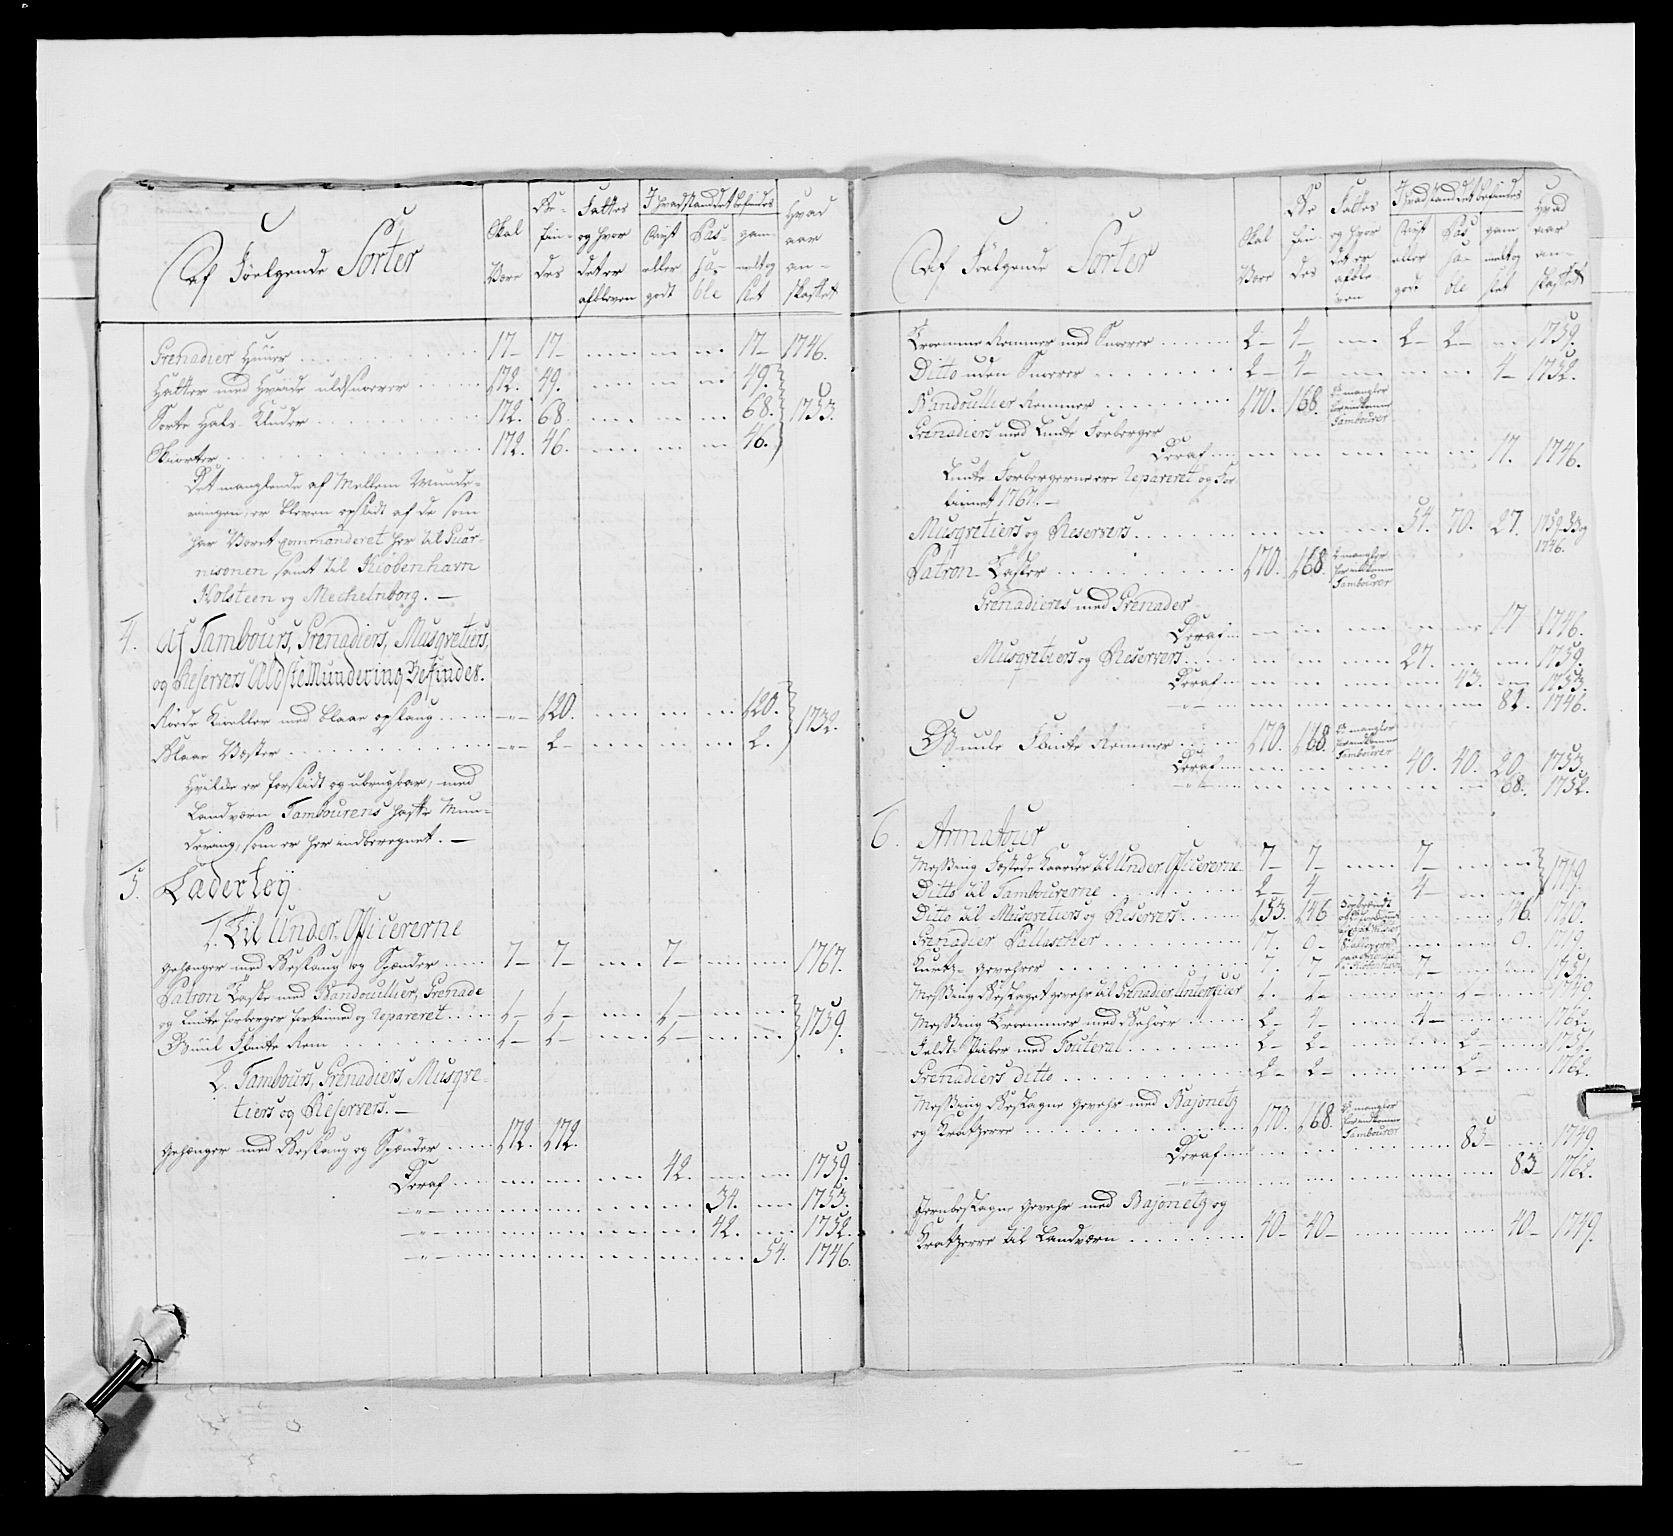 Af Føelgende Sorter
Skal Være
Be-findes
Fattes og hvor det er afbleven
I hvad stand det befindes
Nyt eller godt
Pas-sa-ble
gam-melt og slet
Hvad aar an-skaffet
Grenadier Huuer 17- 17- 17- 1746.
Hatter med Hvide uldsnorer 172. 49. 49.
Sorte Hals Kluder 172. 68. 68. 1753.
Skiorter 172. 46. 46.
Det manglende af Mellem Munde-
ringen, er bleven opslidt af de som
har Været Commanderet her til Guar-
nisonen samt til Kiøbenhavn
Holsteen og Mechelnborg. —
4. Af Tambours, Grenadiers, Musqvetiers,
og Reservers Aldste Mundering Befindes.
Røde Kioeller med blaae opslaug 120. 120. 1732.
Blaae Væster 2- 2.
Hvilke er forslidt og ubrugbar, med
Landværn Tambourens hafte Mun-
dering, som er her indberegnet. —
5. Læder teÿ
1. Til Under Officererne
Gehænger med Beslaug og Spænder 7- 7- 7- 1767.
Patron Taske med Bandouillier, Grenade
og Lunte forberger fortinned og Repareret 1- 1- 1- 1759.
Bruul Flinte Rem 1- 1- 1-
2. Tambours, Grenadiers, Musqve-
tiers og Reservers. —
Gehænger med Beslaug og Spænder 172. 172.
Deraf 42. 1759.
-"- 34. 1753.
-"- 42. 1752.
-"- 54. 1746.
Af Føelgende Sorter
Skal Være
Be fin des
Fattes og hvor det er afble-ven
I hvad stand det befindes
Nyt eller godt
Pas sa-ble
gam melt og slet
Hvad aar an-skaffet
Tromme Remmer med Snorer 2- 4- 2- 2- 1759.
Ditto uden Snorer 2- 4- 4- 1752.
Bandouillier Remmer 170. 168. mangler Tambourer
Grenadiers med Lunte Forberger
Deraf 17. 1746.
Lunte Forbergerne ere Repareret og For
tinnet 1767. —
Musqvetiers og Reservers 54. 70. 27. 1746.
Patron Tasker 170. 168. mangler Tambourer
Grenadiers med Grenader
Deraf 17 1746.
Musqvetiers og Reservers 27. 1759.
Deraf 43. 1753.
-"- 81. 1746.
Bruule Flinte Remmer 170. 168. mangler Tambourer
Deraf 40. 40. 20. 1753.
-"- 68. 1752.
6. Armatour
Messing Kaarder til Under Officererne 7- 7- 7- 1749.
Ditto til Tambourerne 2- 4- 4-
Ditto til Musqvetiers og Reservers 153. 146 146. 1710.
Grenadier Pallascher 17. 0- 0. 1749.
Kurtz-gevehrer 7. 7- 7- 1751.
Messing Beslaget gevehr til Grenadier Unterofficier 1. 1- 1- 1749.
Messing Trommer med Behør 2- 4- 4- 1762.
Feldt-Piber med Fouteral 2- 2- 2- 1757.
Grenadiers ditto 2- 2- 2- 1762.
Messing Beslagne gevehr med Bajonetz
og Kratzere 170. 168. mangler Tambourer
Deraf 85- 1749.
-"- 83- 1762.
Jernbeslagne gevehr med Bajonetz og
Kratzere til Landværn 40- 40- 40- 1749.